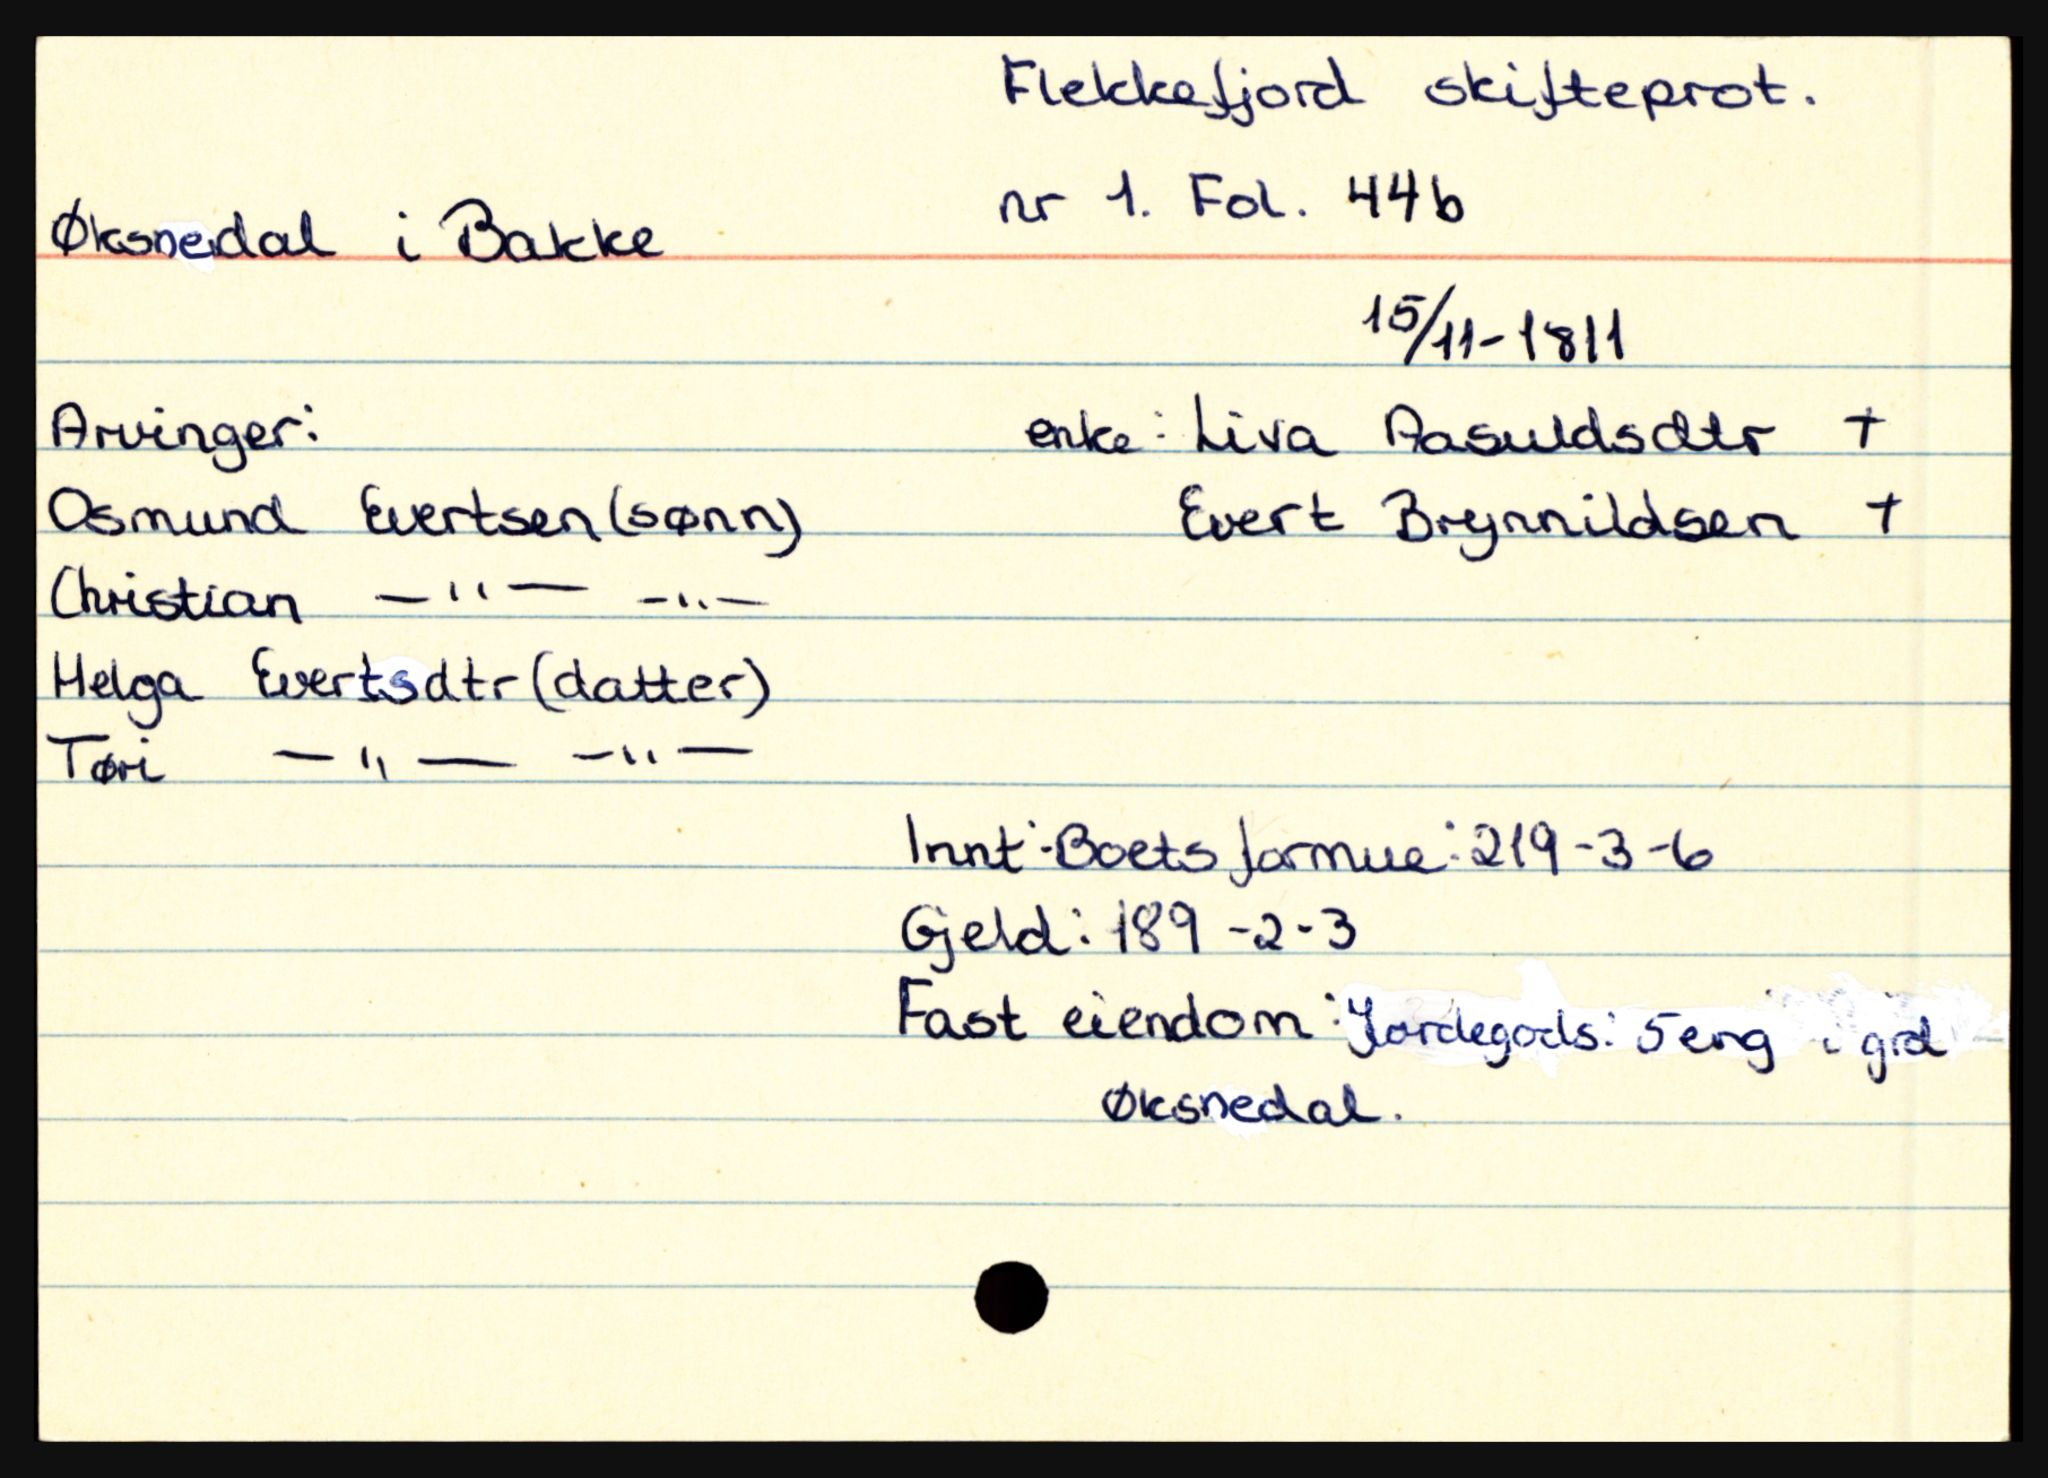 Flekkefjord skifteprot.
nr 1. Fol. 44b
Øksnedal i Bakke
15/11-1811
Arvinger:
enke: Liva Aasuldsdtr +
Osmund Evertsen (sønn)
Evert Brynnildsen +
Christian —"— —"—
Helga Evertsdtr (datter)
Tøri —"— —"—
Innt: Boets formue: 219-3-6
Gjeld: 189-2-3
Fast eiendom: Jordegods: 5 eng i grd
Øksnedal.